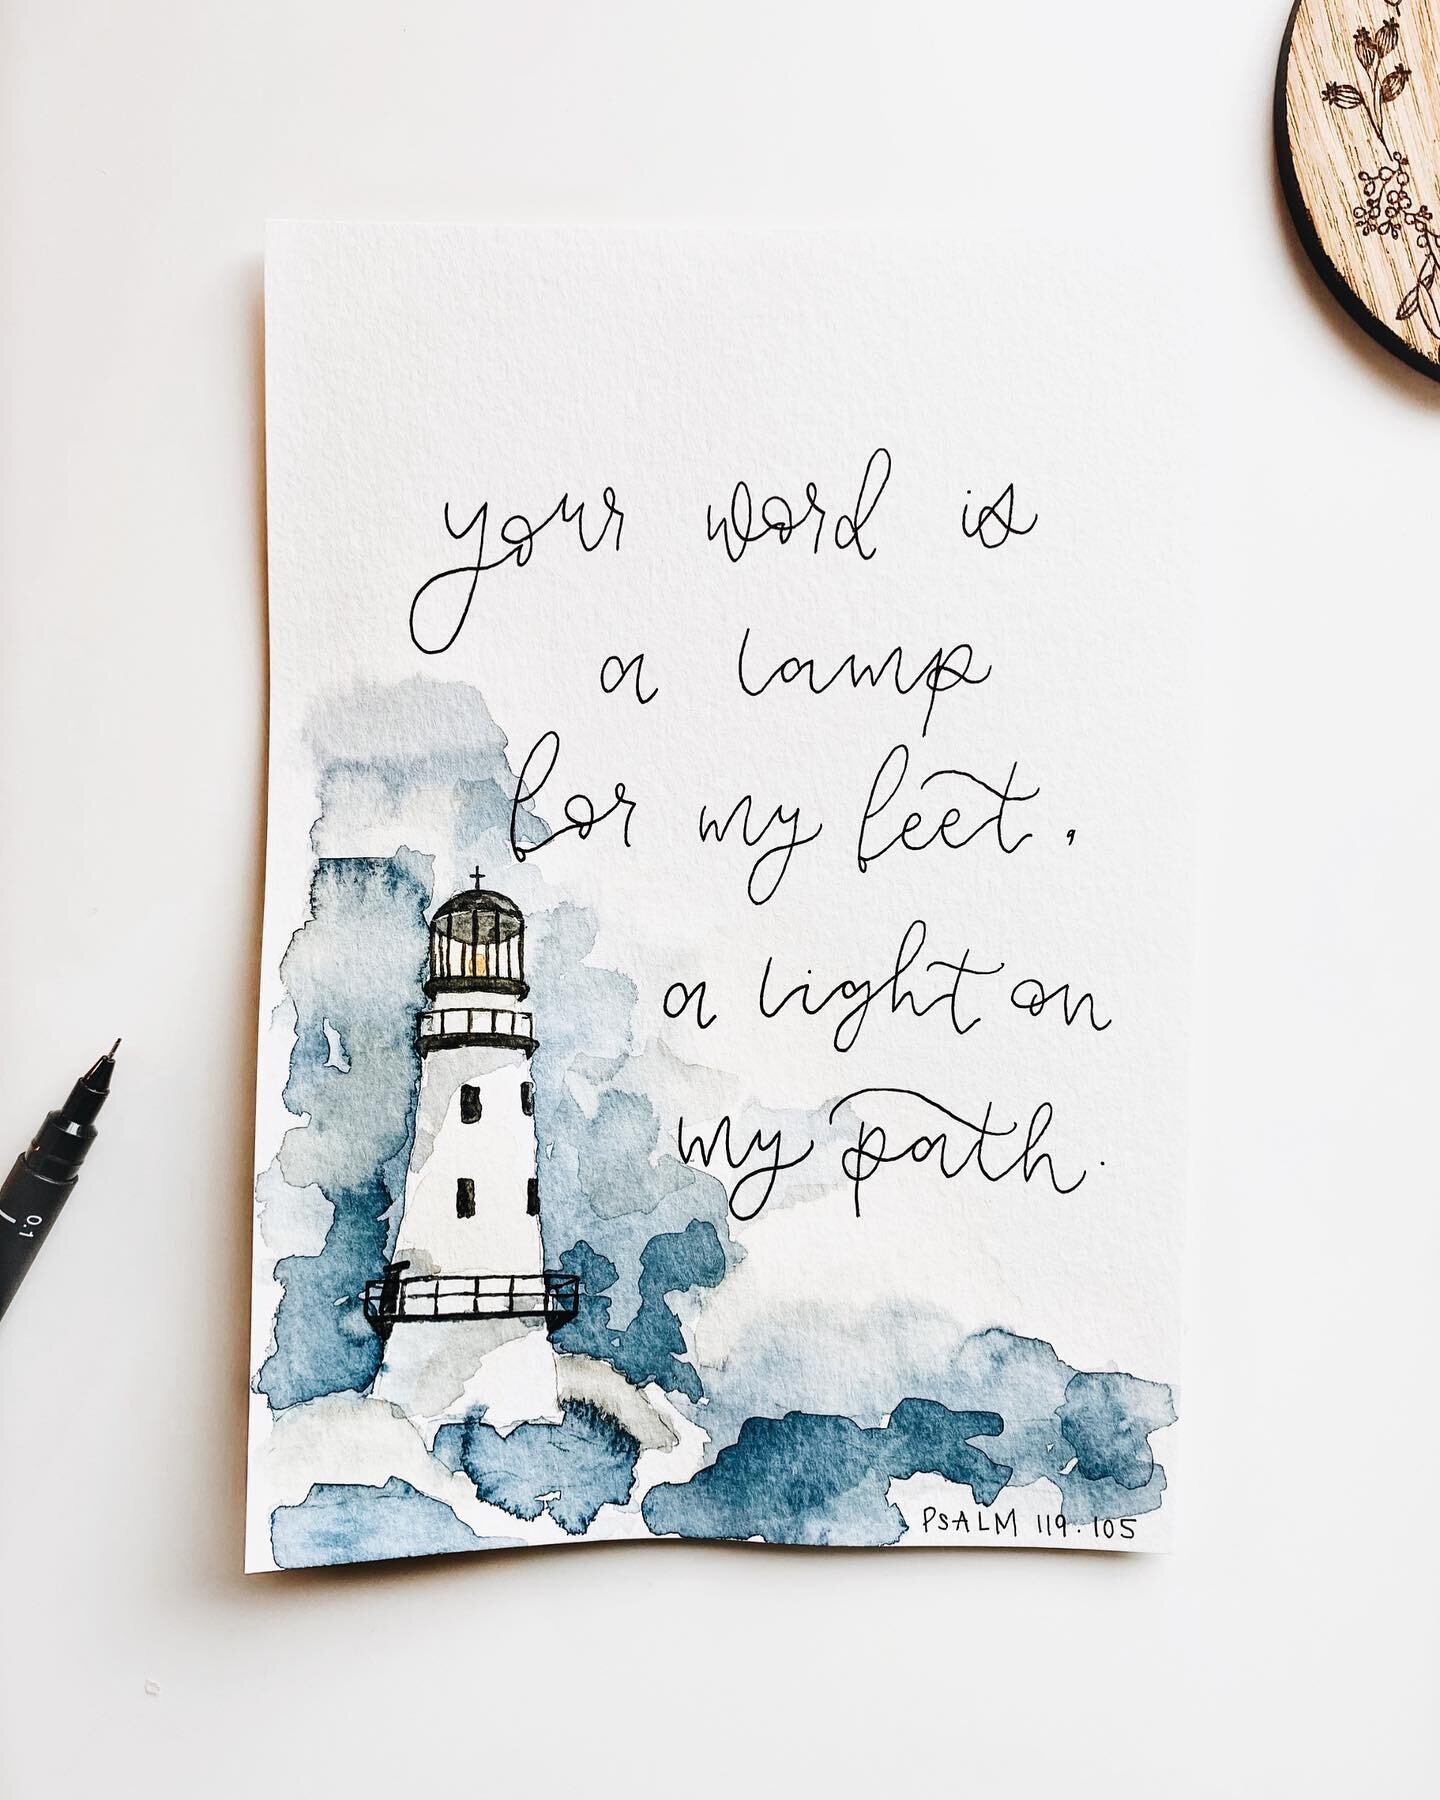 your word is
a lamp
for my feet,
a light on
my path.
PSALM 119.105
0.1